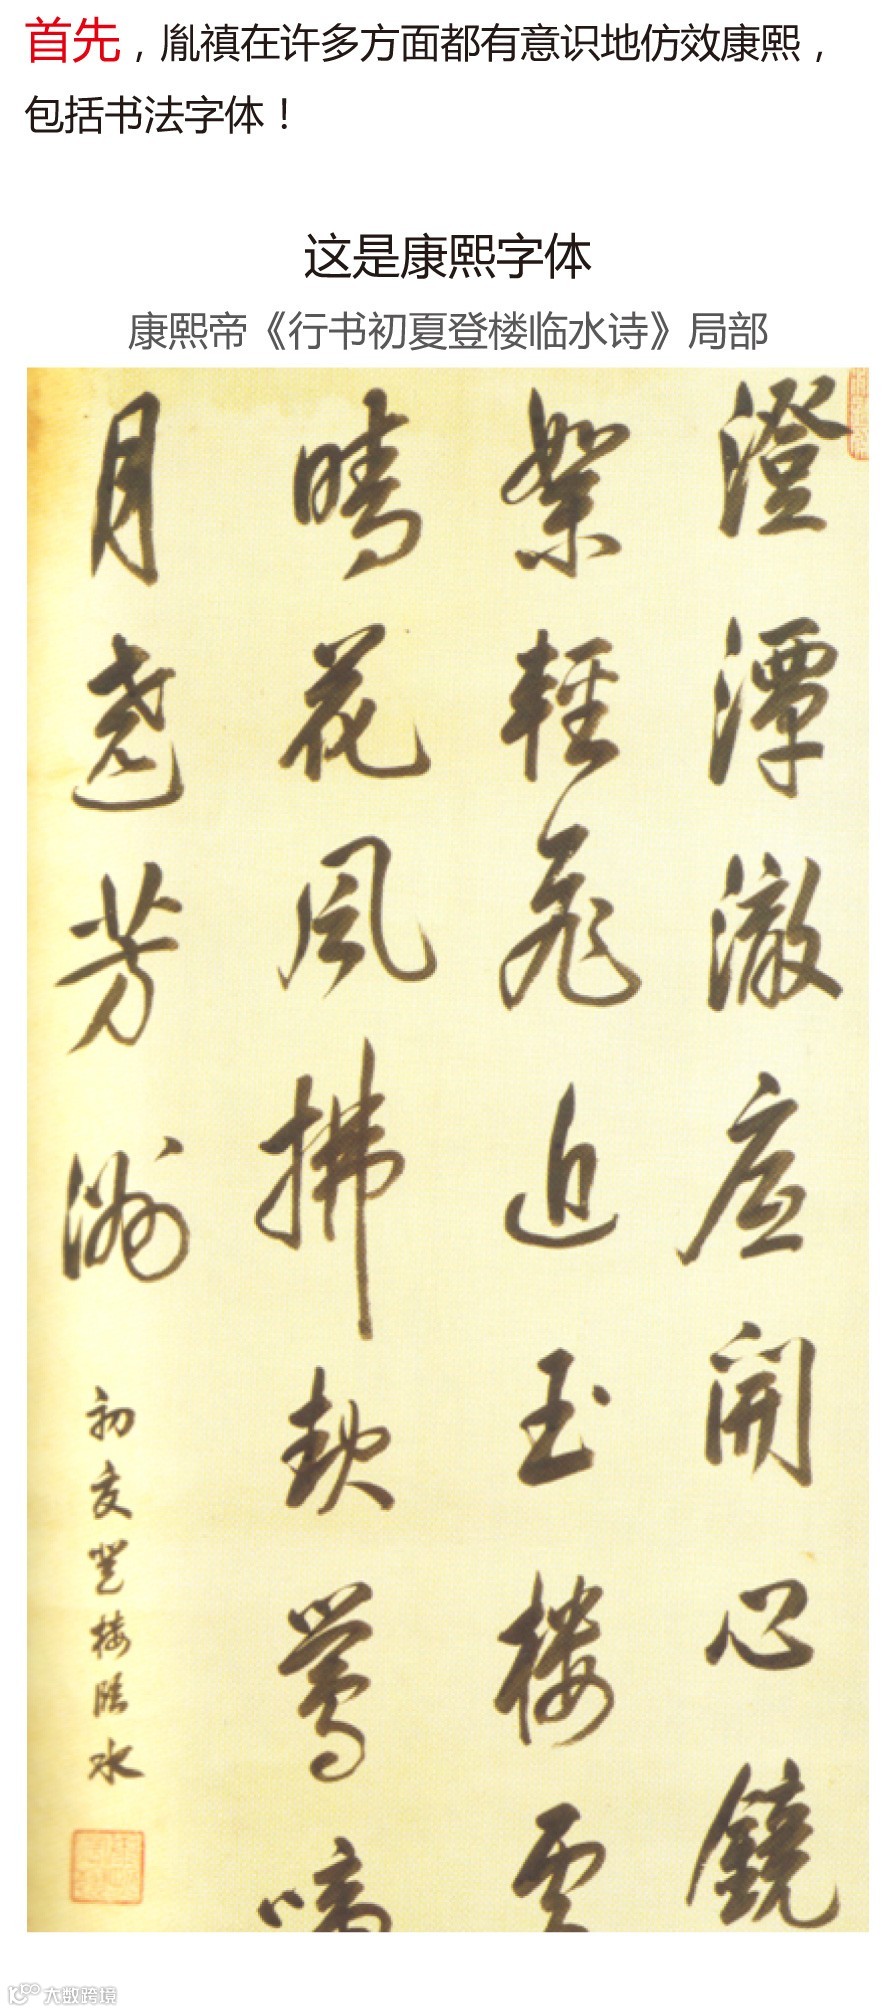 首先，胤禛在许多方面都有意识地仿效康熙，
包括书法字体！
这是康熙字体
康熙帝《行书初夏登楼临水诗》局部
澄潭澈底開心鏡
絮輕飛近玉樓雲
晴花風拂
鶯啼
月遶芳洲
初夏登樓臨水
大数跨境